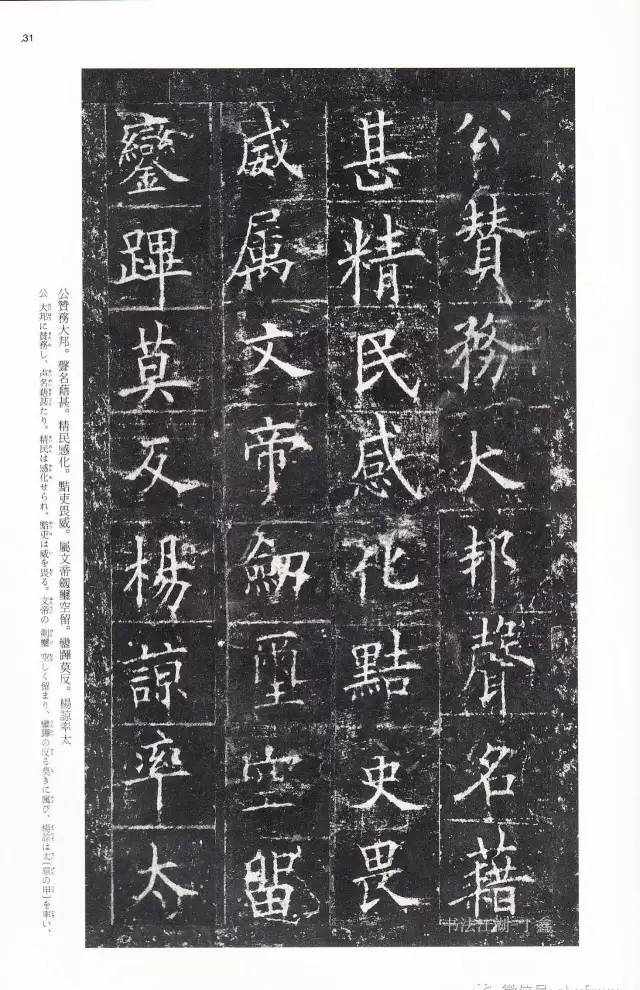 31
公賛務大邦聲名藉
甚精民感化黠吏畏
威属文帝劒璽空留
鑾蹕莫反楊諒率太
公贊務大邦。聲名藉甚。精民感化。黠吏畏威。屬文帝劔璽空留。鑾蹕莫反。楊諒率太
公 大邦に賛務し、声名藉甚たり。精民は感化せられ、黠吏は威を畏る。文帝の劔璽 空しく留まり、鑾蹕の反る莫きに属び、楊諒は太
书法江湖 丁鑫
微信号